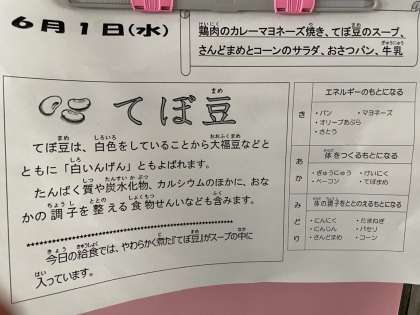 6月1日(水)
鶏肉のカレーマヨネーズ焼き、てぼ豆のスープ、
さんどまめとコーンのサラダ、おさつパン、牛乳
てぼ豆
てぼ豆は、白色をしていることから大福豆などと
ともに「白いんげん」ともよばれます。
たんぱく質や炭水化物、カルシウムのほかに、おな
かの調子を整える食物せんいなども含みます。
今日の給食では、やわらかく煮た『てぼ豆』がスープの中に
入っています。
エネルギーのもとになる
き
・パン ・マヨネーズ
・オリーブあぶら
・さとう
体をつくるもとになる
あか
・ぎゅうにゅう ・けいにく
・ベーコン ・てぼまめ
体の調子をととのえるもとになる
みどり
・にんにく ・たまねぎ
・にんじん ・パセリ
・さんどまめ ・コーン